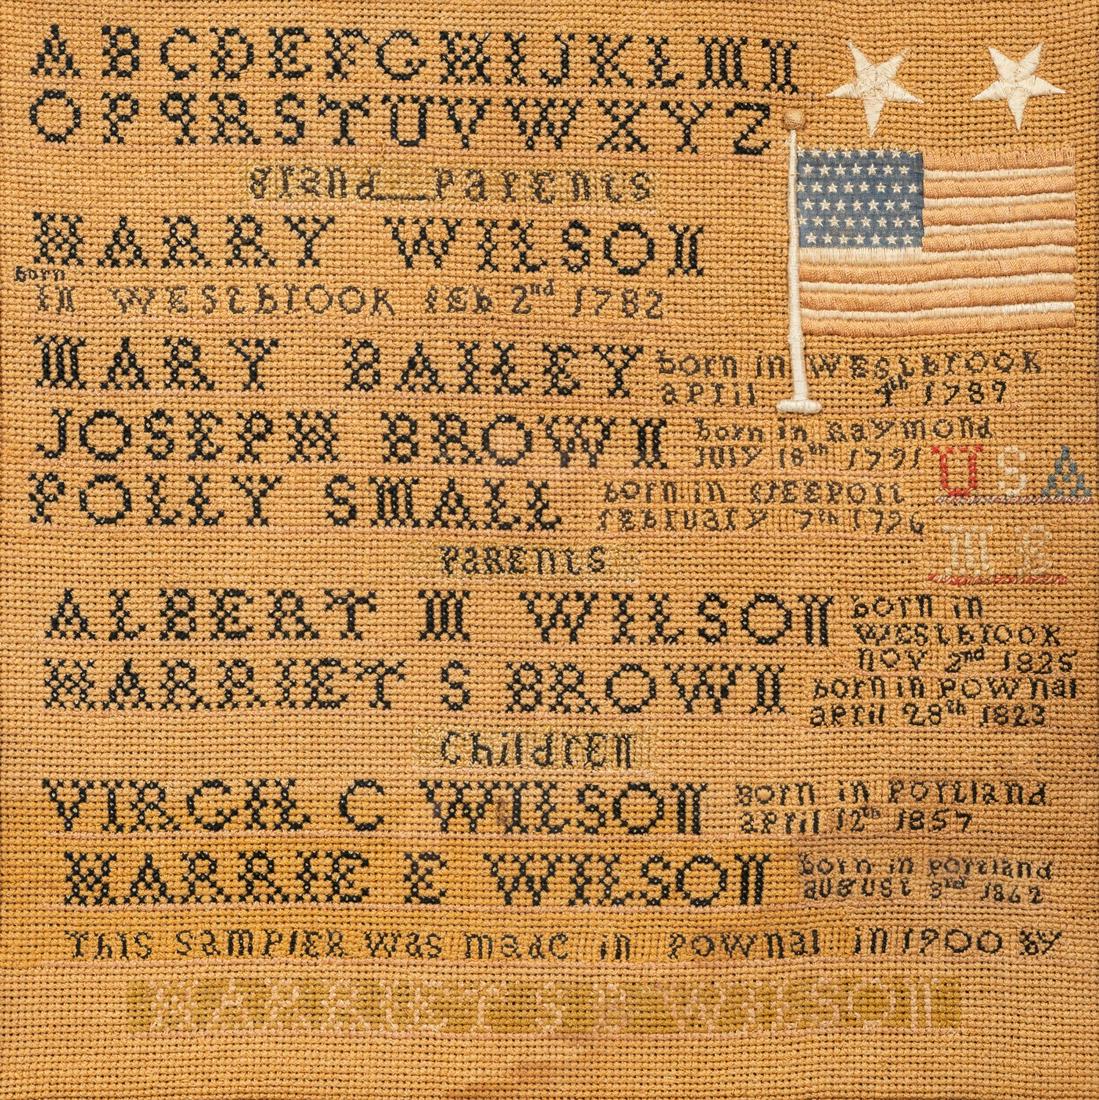 A B C D E F G H I J K L M N
O P Q R S T U V W X Y Z
grand parents
HARRY WILSON
born
in WEStbrook feb 2nd 1782
MARY BAILEY born in WEStbrook
april 4th 1789
JOSEPH BROWN born in Raymond
JULY 18th 1791
POLLY SMALL born in freeport
february 7th 1796
USA
ME
parents
ALBERT M WILSON born in
WEStbrook
nov 2nd 1825
HARRIET S BROWN born in Pownal
april 28th 1823
Children
VIRGIL C WILSON Born in Portland
april 12th 1857
HARRIE E WILSON born in portland
august 3rd 1862
This sampler was made in Pownal in 1900 BY
HARRIET S B WILSON